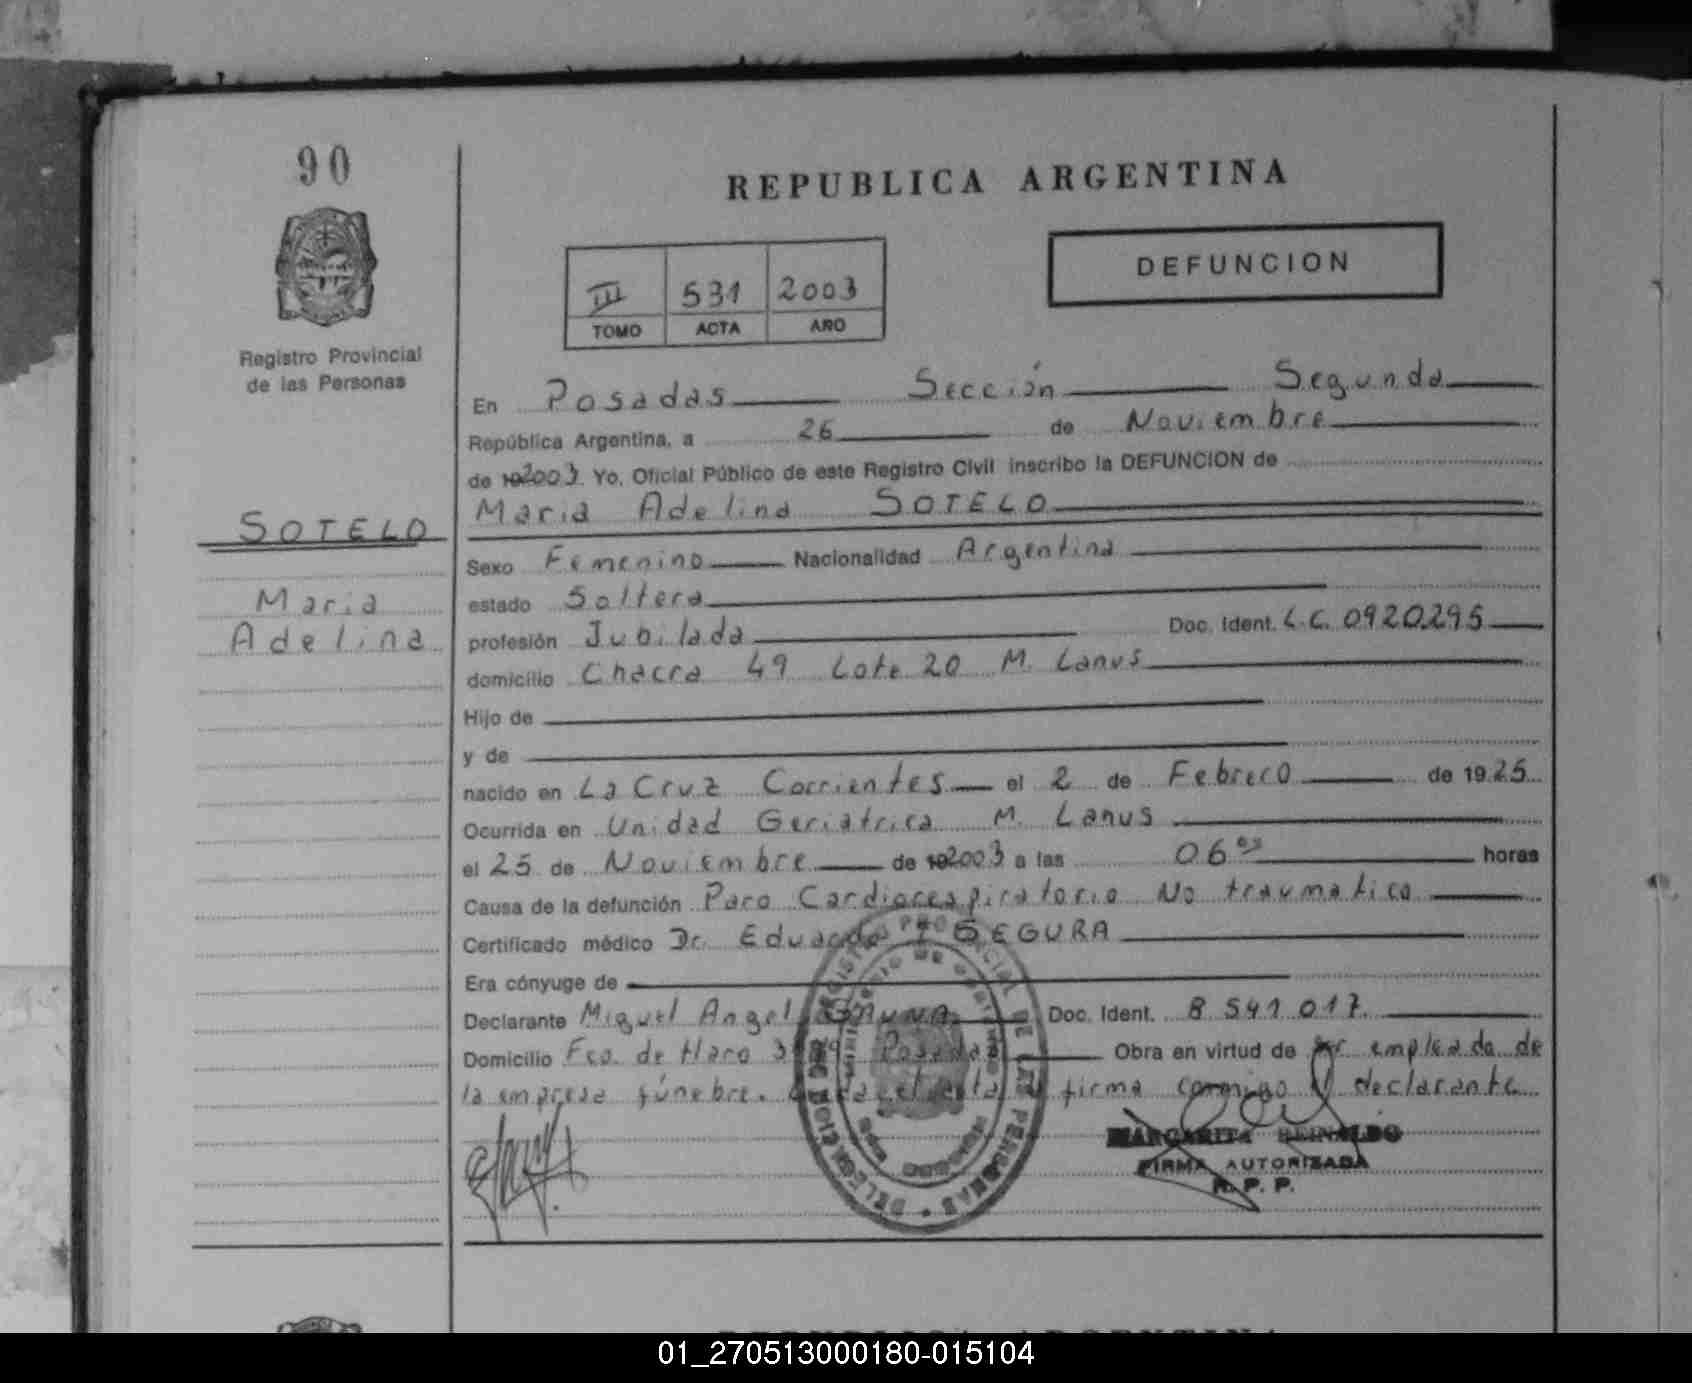 90
REPUBLICA ARGENTINA
DEFUNCION
III 531 2003
TOMO ACTA AÑO
Registro Provincial
de las Personas
SOTELO
Maria
Adelina
En Posadas Sección Segunda
República Argentina, a 26 de Noviembre
de 192003. Yo, Oficial Público de este Registro Civil inscribo la DEFUNCION de
Maria Adelina SOTELO
Sexo Femenino Nacionalidad Argentina
estado Soltera
profesión Jubilada Doc. Ident. L.C. 0920295
domicilio Chacra 49 Lote 20 M. Lanus
Hijo de
y de
nacido en La Cruz Corrientes el 2 de Febrero de 1925
Ocurrida en Unidad Geriatrica M. Lanus
el 25 de Noviembre de 192003 a las 06 horas
Causa de la defunción Paro Cardiorespiratorio No traumatico
Certificado médico Dr. Eduardo SEGURA
Era cónyuge de
Declarante Miguel Angel GAUNA Doc. Ident. 8.541.017.
Domicilio Fco. de Haro Posadas Obra en virtud de ser empleado de
la empresa fúnebre. firma conmigo el declarante
REGISTRO PROVINCIAL DE LAS PERSONAS
MARGARITA REINALDO
FIRMA AUTORIZADA
R. P. P.
REPUBLICA ARGENTINA
01_270513000180-015104